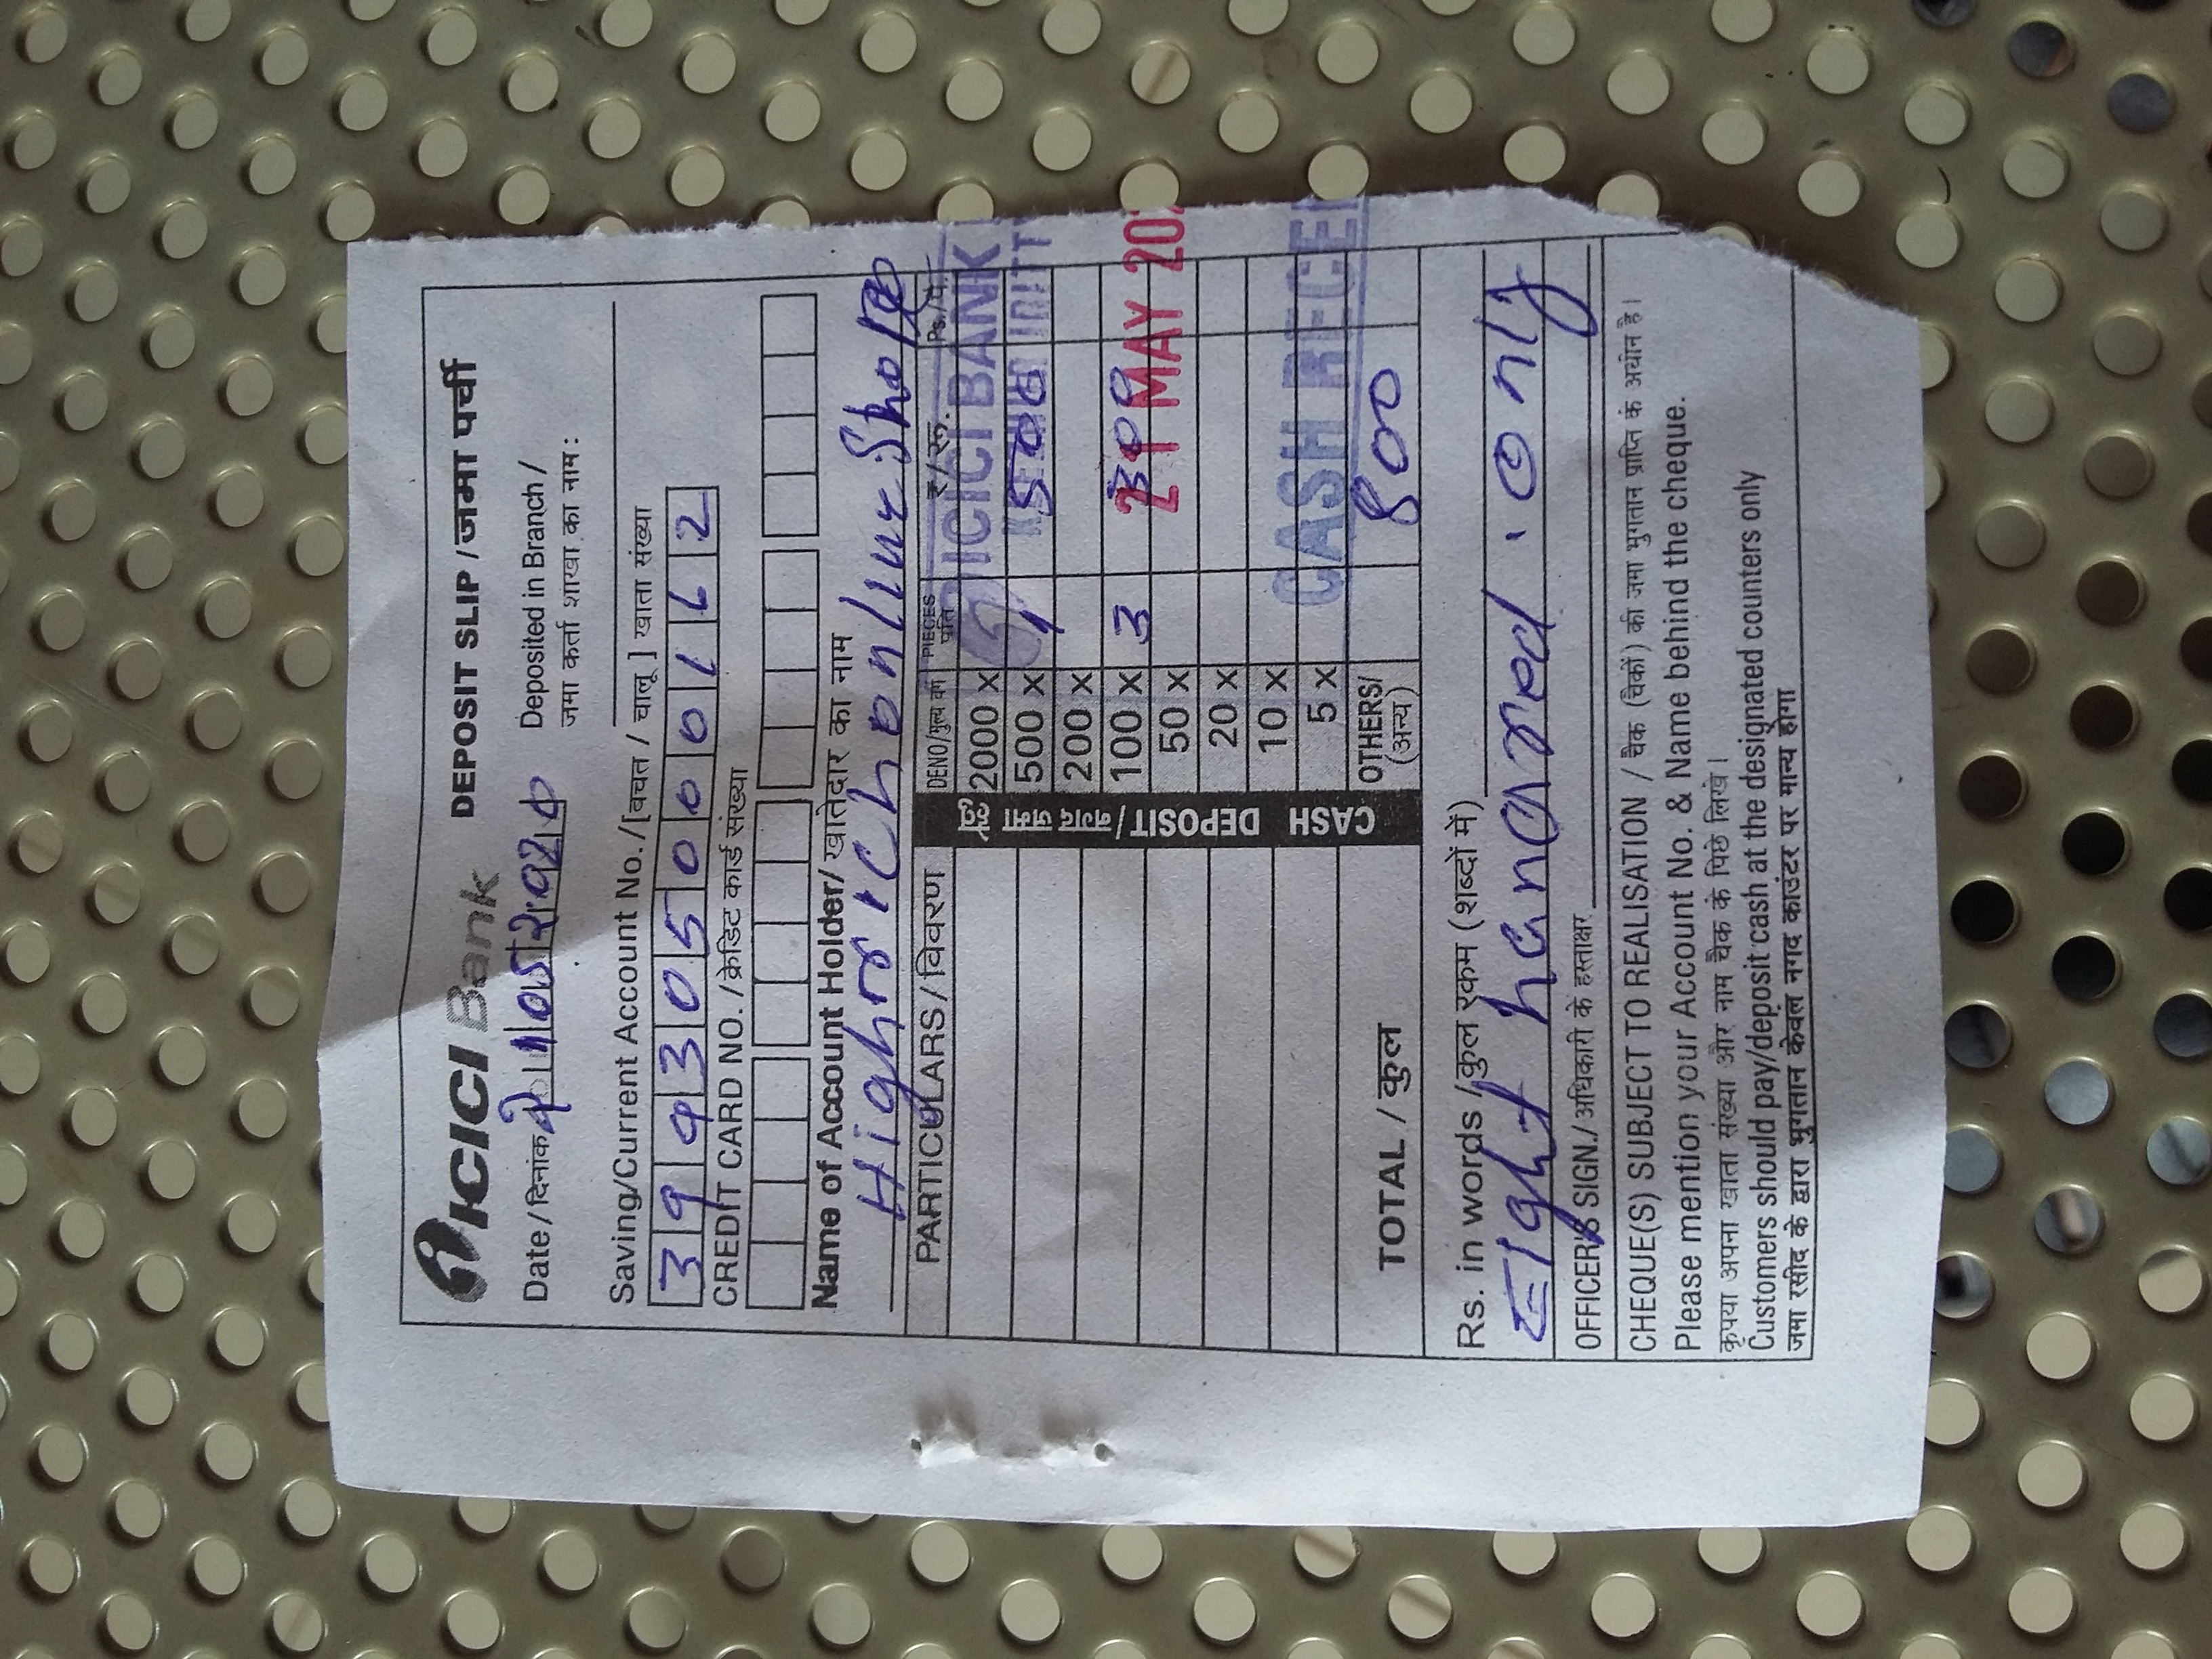 ICICI Bank DEPOSIT SLIP / जमा पर्ची
Date / दिनांक 21052020 Deposited in Branch /
जमा कर्ता शाखा का नाम :
Saving/Current Account No. /[बचत / चालू ] खाता संख्या
394305000162
CREDIT CARD NO. / क्रेडिट कार्ड संख्या
Name of Account Holder/ खातेदार का नाम
Highrich online Shope
PARTICULARS / विवरण DENO/मुल्य वर्ग PIECES प्रति ₹ / रू. Ps./पै.
CASH DEPOSIT / नगद जमा हेतु
2000 x
ICICI BANK
500 x 1 500
200 x
100 x 3 300
21 MAY 202
50 x
20 x
10 x
CASH RECEI
5 x
TOTAL / कुल OTHERS/ (अन्य) 800
Rs. in words / कुल रकम (शब्दों में)
Eight handred . only
OFFICER'S SIGN./ अधिकारी के हस्ताक्षर
CHEQUE(S) SUBJECT TO REALISATION / चैक (चैकों) की जमा भुगतान प्राप्ति के अधीन है।
Please mention your Account No. & Name behind the cheque.
कृपया अपना खाता संख्या और नाम चैक के पिछे लिखे।
Customers should pay/deposit cash at the designated counters only
जमा रसीद के द्वारा भुगतान केवल नगद काउंटर पर मान्य होगा